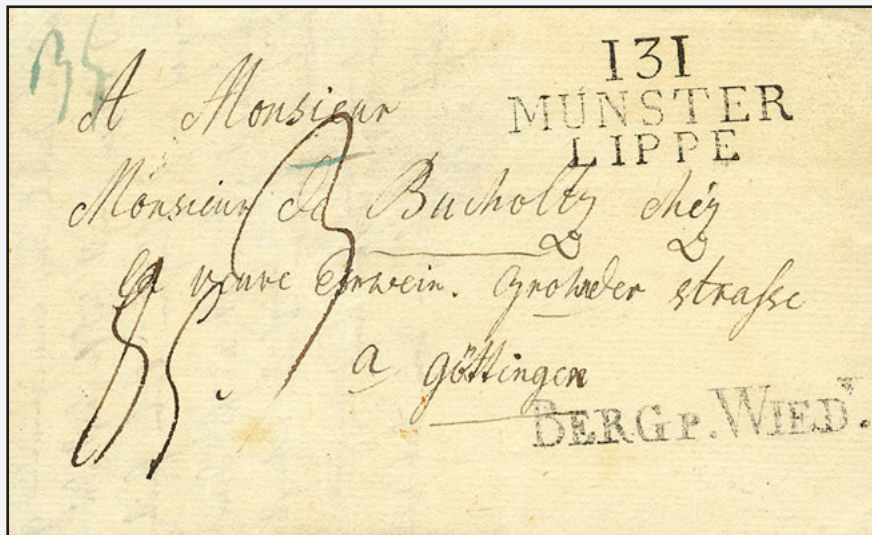 131
MÜNSTER
LIPPE
A Monsieur
Monsieur de Bucholtz chéz
la veuve Erwein. Grohnder strasse
a göttingen
BERG P. WIED.